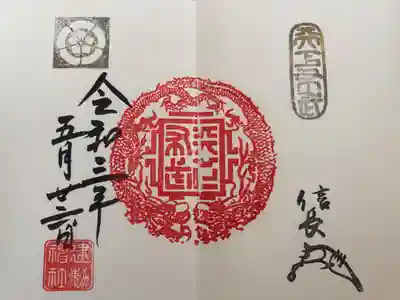 天下布武
信長
令和三年
五月廿二日
建勲神社